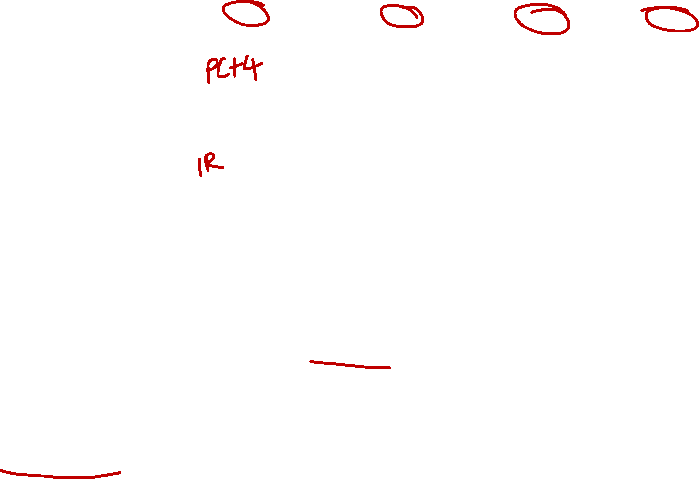 PC+4
IR